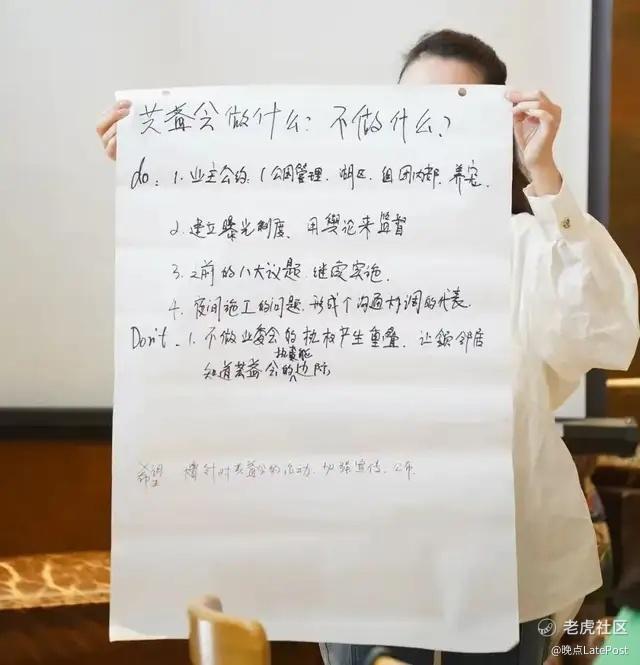 芙蓉会做什么？不做什么？
do：1. 业主公约：(公园管理、湖区、组团内部、养宠
2. 建立曝光制度、用舆论来监督
3. 之前的八大议题、继续实施.
4. 夜间施工的问题.形成个沟通协调的代表.
Don't. 1. 不做业委会的执权产生重叠、让邻居
知道芙蓉会的边际
希望
宣传、公布
老虎社区
@晚点LatePost